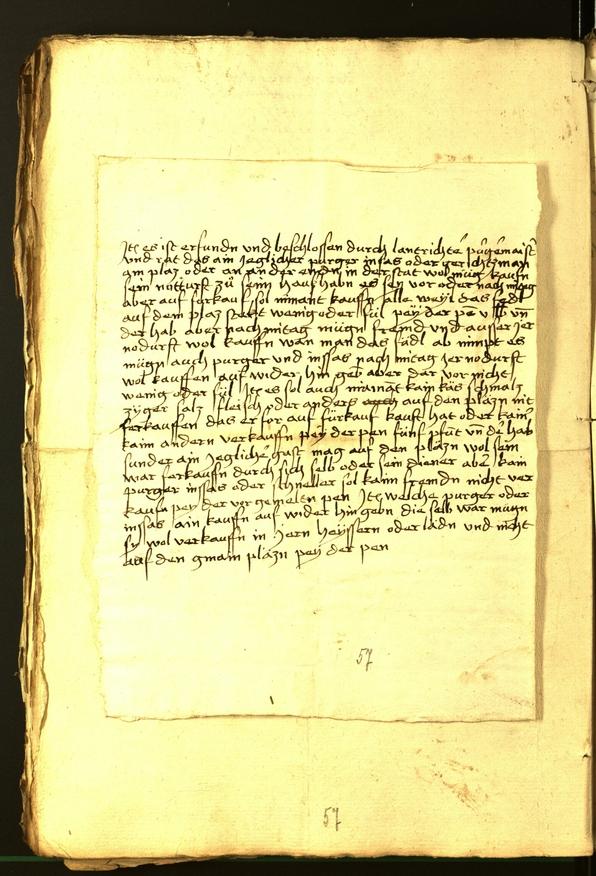 Ite es ist erfundn und beschlossen durch lantrichte pürgemaist
vnd rat das ain yeglicher purger insas oder gerichtzman
am plaz oder an ander endn in der stat wol müg kaufn
sein notturft zü seim haus habn es sey vor oder nach mitag
aber auf fürkauf sol nimant kauffn alle weyl das fädl
auf dem plaz stect wenig oder fül pey der pen v lb vn
der hab aber nach mitag mügn fremd vnd auser jer
nodurft wol kauffn wan man das fädl ab nimpt es
mügn auch purger und insas nach mitag jer nodurft
wol kauffen auf wider hin geb aber dar vor nicht
wenig oder fül Ite es sol auch nimant kain käs schmalz
zyger salz fleisch oder anders auf den pläzn nit
ferkauffen das er for auf fürkauf kauft hat oder kaim
kaim andern verkauffn pey der pen fünf pfüt vn de hab
sunder ain yeglicher gast mag auf den pläzn wol sein
war ferkauffn durch sich selb oder sein diener aber kain
purger inssas oder schneller sol kaim fremdn nicht ver
kaufn pey der vorgemeltn pen Ite welche purger oder
inssas ain kauffn auf wider hin gebn die selb war mügn
sy wol verkauffn in jern heyssern oder lädn und nicht
auf den gmain pläzn pey der pen
57
57